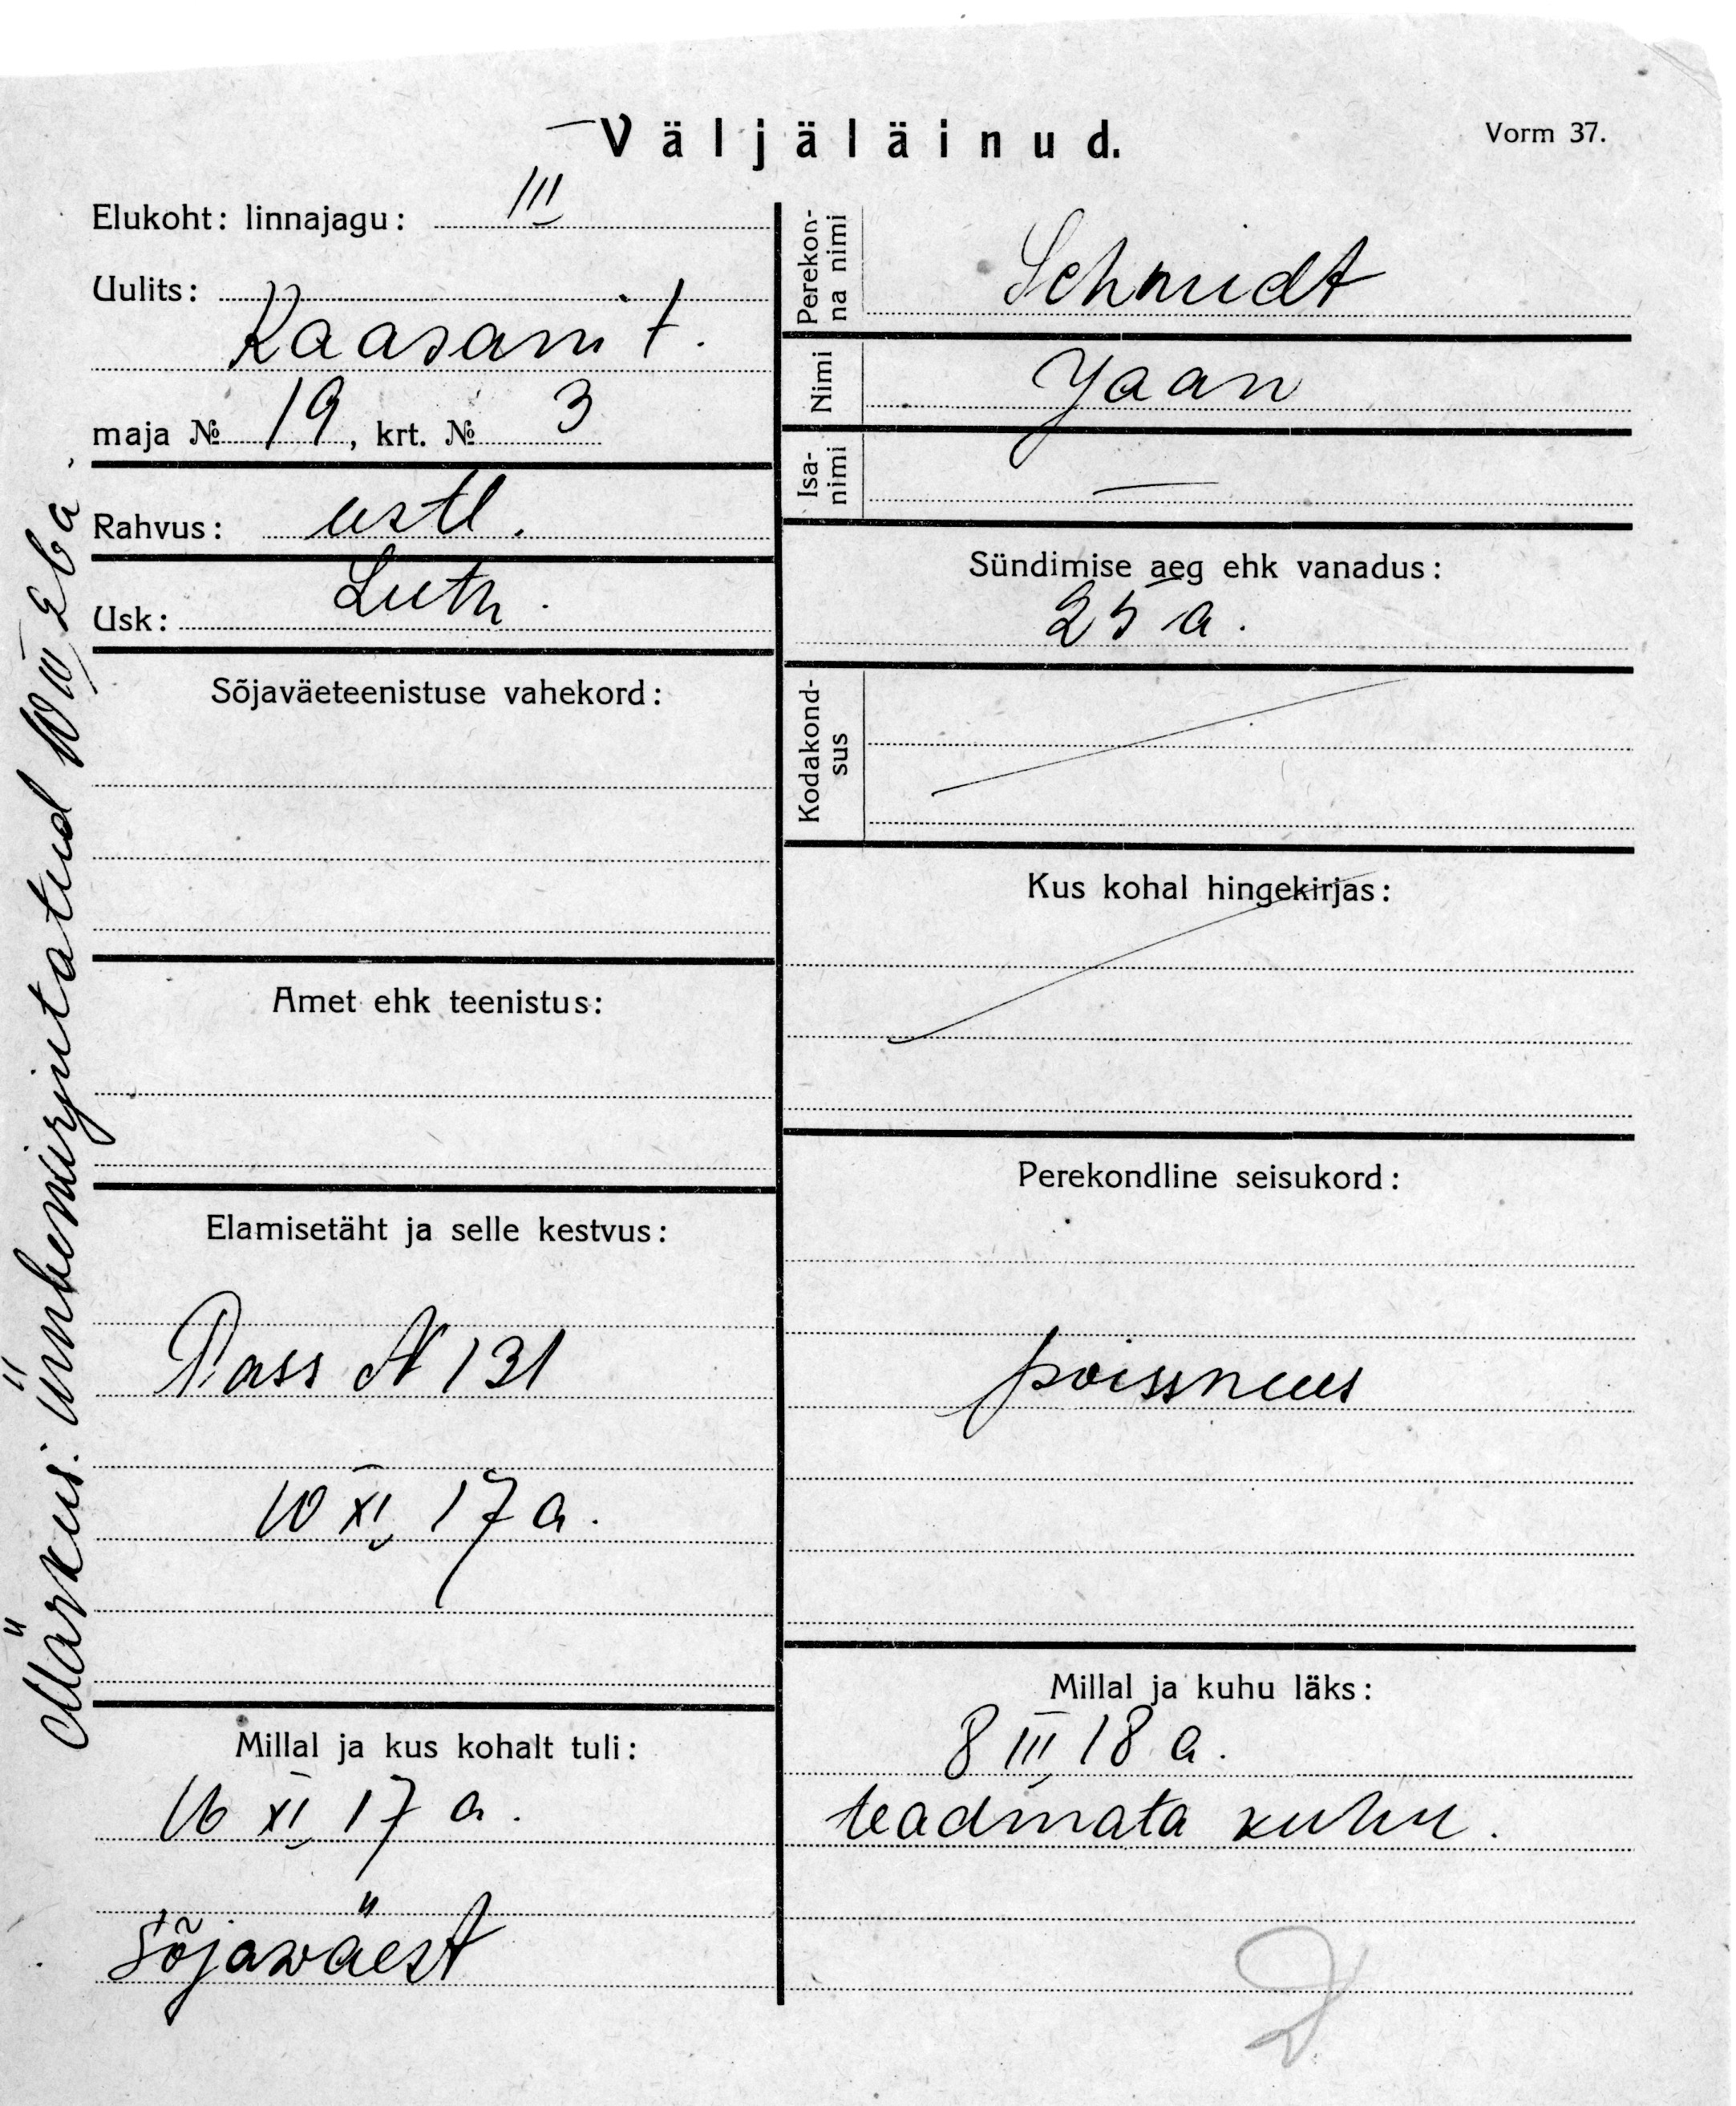 Väljäläinud.
Vorm 37.
Elukoht: linnajagu: III
Uulits:
Kaasani t.
maja № 19, krt. № 3
Rahvus: estl.
Usk: Luth.
Sõjaväeteenistuse vahekord:
Amet ehk teenistus:
Elamisetäht ja selle kestvus:
Pass N 131
10 XI 17 a.
Millal ja kus kohalt tuli:
16 XI 17 a.
Sõjawäest
Perekon-
na nimi
Schmidt
Nimi Jaan
Isa-
nimi —
Sündimise aeg ehk vanadus:
25 a.
Kodakond-
sus
Kus kohal hingekirjas:
Perekondline seisukord:
poissmees
Millal ja kuhu läks:
8 III 18 a.
teadmata kuhu.
Märkus: Ümberkirjutatud 10 III 26 a.